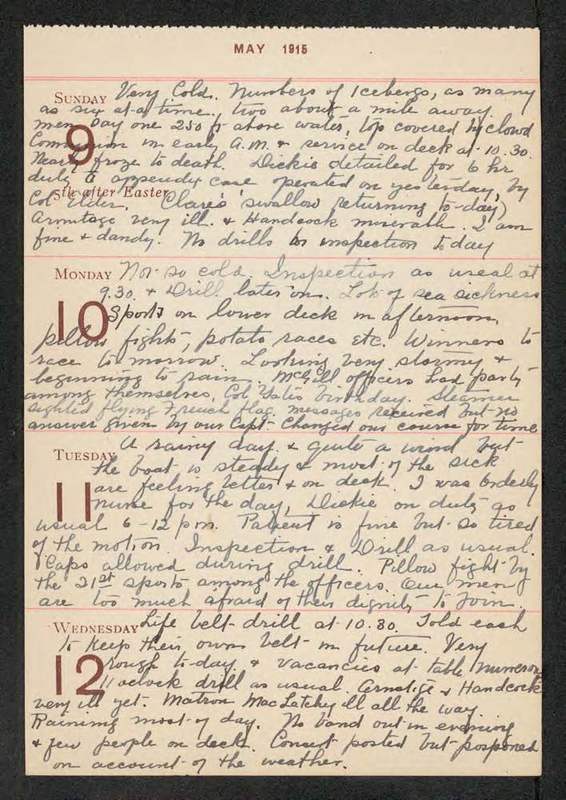 MAY 1915
SUNDAY Very Cold. Numbers of Icebergs, as many
as six at a time, two about a mile away
one 250 ft above water, top covered by cloud
9 Communion in early A.M. & service on deck at 10.30.
Nearly froze to death. Dickie detailed for 6 hr
duty to appendix case operated on yesterday, by
5th after Easter
Col Elder. (Clare's swallow returning to-day)
Armitage very ill & Handcock miserable. I am
fine & dandy. No drills or inspection to day
MONDAY Not so cold. Inspection as usual at
9.30. & Drill later on. Lots of sea sickness
10 Sports on lower deck in afternoon,
pillow fights, potato races etc. Winners to
race to-morrow. Looking very stormy &
beginning to rain. McGill officers had party
among themselves, Col Yates birthday. Steamer
sighted flying French flag. messages received but no
answer given by our Capt. Changed our course for time
TUESDAY A rainy day & quite a wind but
the boat is steady & most of the sick
11 are feeling better & on deck. I was Orderly
nurse for the day, Dickie on duty as
usual 6-12 pm. Patient is fine but so tired
of the motion Inspection & Drill as usual.
Caps allowed during drill. Pillow fight by
the 21st sports among the officers. Our men
are too much afraid of their dignity to join.
WEDNESDAY Life belt drill at 10.30. Told each
to keep their own belt in future. Very
12 rough to-day & vacancies at table numerous
11 oclock drill as usual. & Handcock
very ill yet. Matron MacLatchy ill all the way.
Raining most of day. No band out in evening
& few people on deck. Concert posted but postponed
on account of the weather.